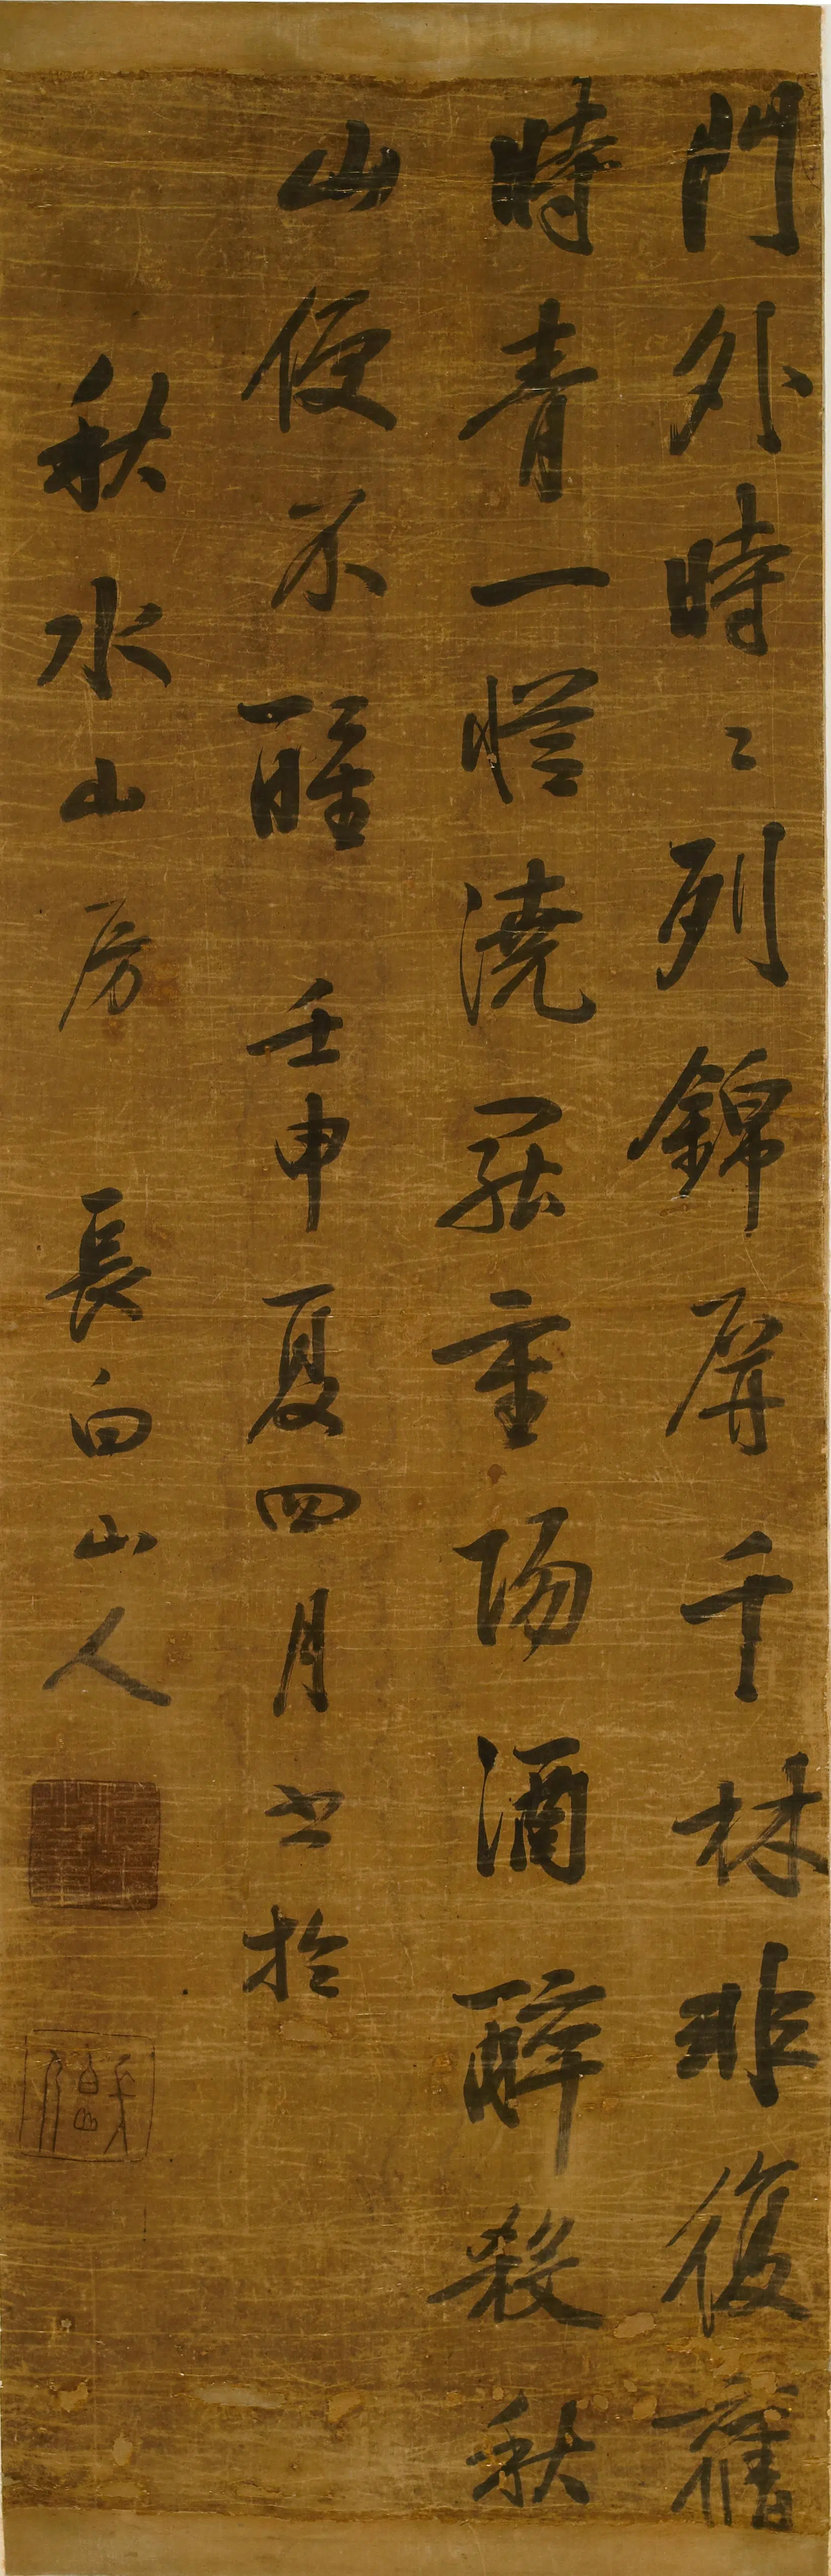 門外時〻列錦屏千林非復舊
時青一澆罷重陽酒醉殺秋
山便不醒 壬申夏四月书於
秋水山房 長白山人